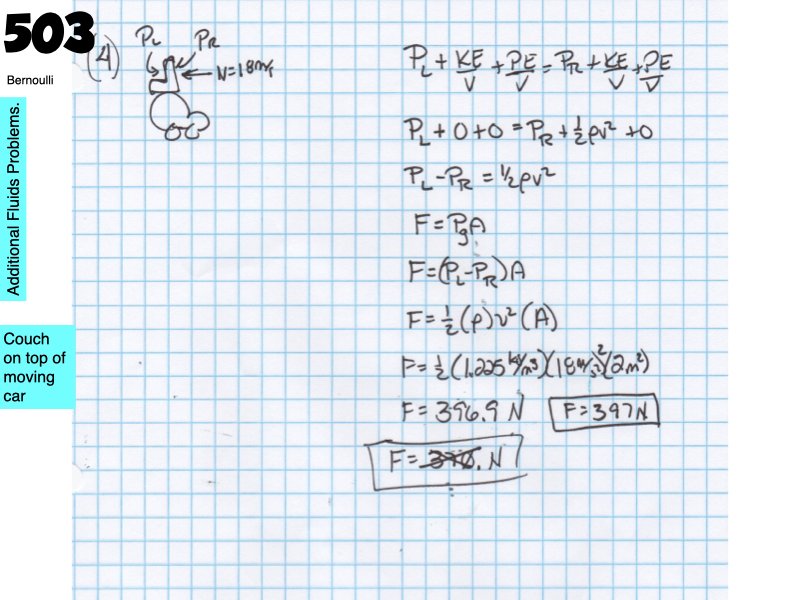 503
Bernoulli
Additional Fluids Problems.
Couch
on top of
moving
car
(4)
P_L P_R
V=18m/s
P_L + KE/V + PE/V = P_R + KE/V + PE/V
P_L + 0 + 0 = P_R + ½ρv² + 0
P_L - P_R = ½ρv²
F = P_g A
F = (P_L - P_R) A
F = ½(ρ)v²(A)
F = ½(1.225 kg/m³)(18 m/s)²(2m²)
F = 396.9 N F = 397 N
F = N